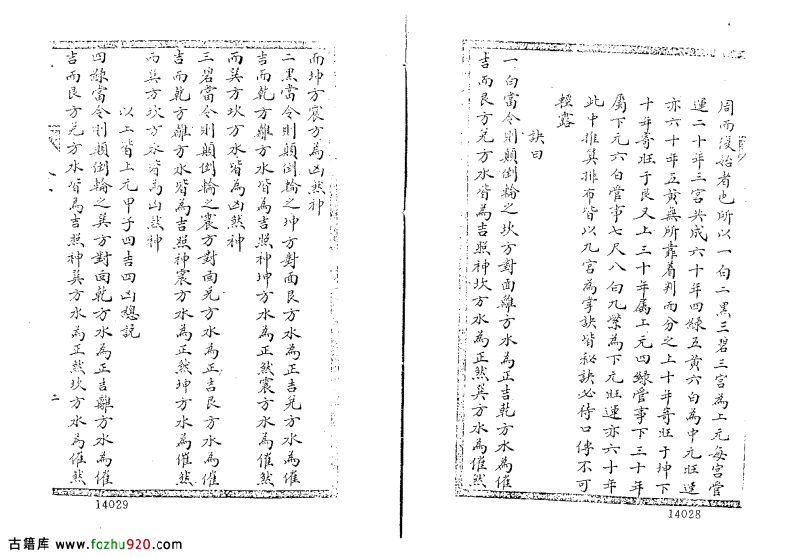 周而復始者也所以一白二黑三碧三宮為上元每宮管
運二十年三宮共成六十年四綠五黃六白為中元旺運
亦六十年五黃無所靠着判而分之上十年寄旺于坤下
十年寄旺于艮又上三十年屬上元四綠管事下三十年
屬下元六白管事七尺八白九紫為下元旺運亦六十年
此中推算排布皆以九宮為掌訣皆秘訣必待口傳不可
輕露
訣曰
一白當令則顛倒輪之坎方對面離方水為正吉乾方水為催
吉而艮方兌方水皆為吉照神坎方水為正煞巽方水為催煞
14028
而坤方震方為凶煞神
二黑當令則顛倒輪之坤方對面艮方水為正吉兌方水為催
吉而乾方離方水皆為吉照神坤方水為正煞震方水為催煞
而巽方坎方水皆為凶煞神
三碧當令則顛倒輪之震方對面兌方水為正吉艮方水為催
吉而乾方離方水皆為吉照神震方水為正煞坤方水為催煞
而巽方坎方水皆為凶煞神
以上皆上元甲子四吉四凶總說
四綠當令則顛倒輪之巽方對面乾方水為正吉離方水為催
吉而艮方兌方水皆為吉照神巽方水為正煞坎方水為催煞
二
14029
古籍库 www.fozhu920.com